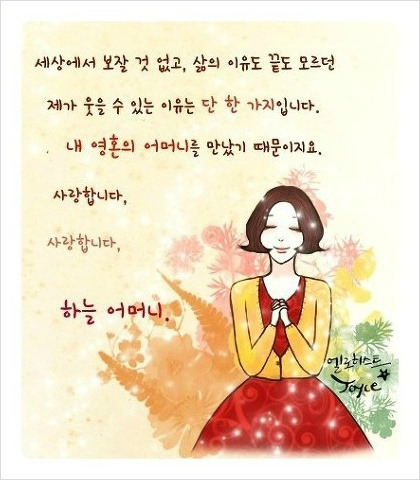 세상에서 보잘 것 없고, 삶의 이유도 끝도 모르던
제가 웃을 수 있는 이유는 단 한 가지입니다.
내 영혼의 어머니를 만났기 때문이지요.
사랑합니다,
사랑합니다,
하늘 어머니.
엘로히스트
Joyce